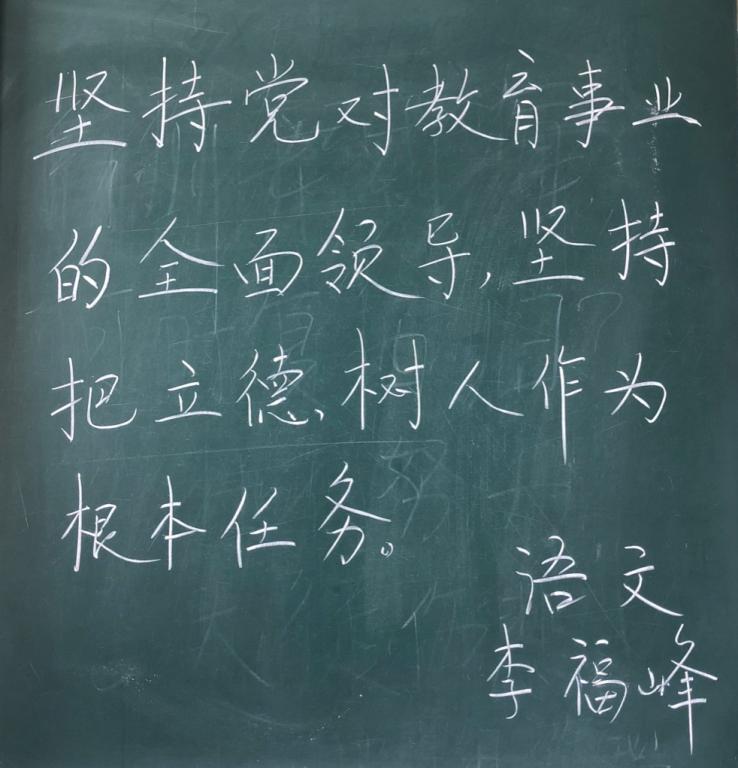 坚持党对教育事业
的全面领导,坚持
把立德树人作为
根本任务。
语文
李福峰